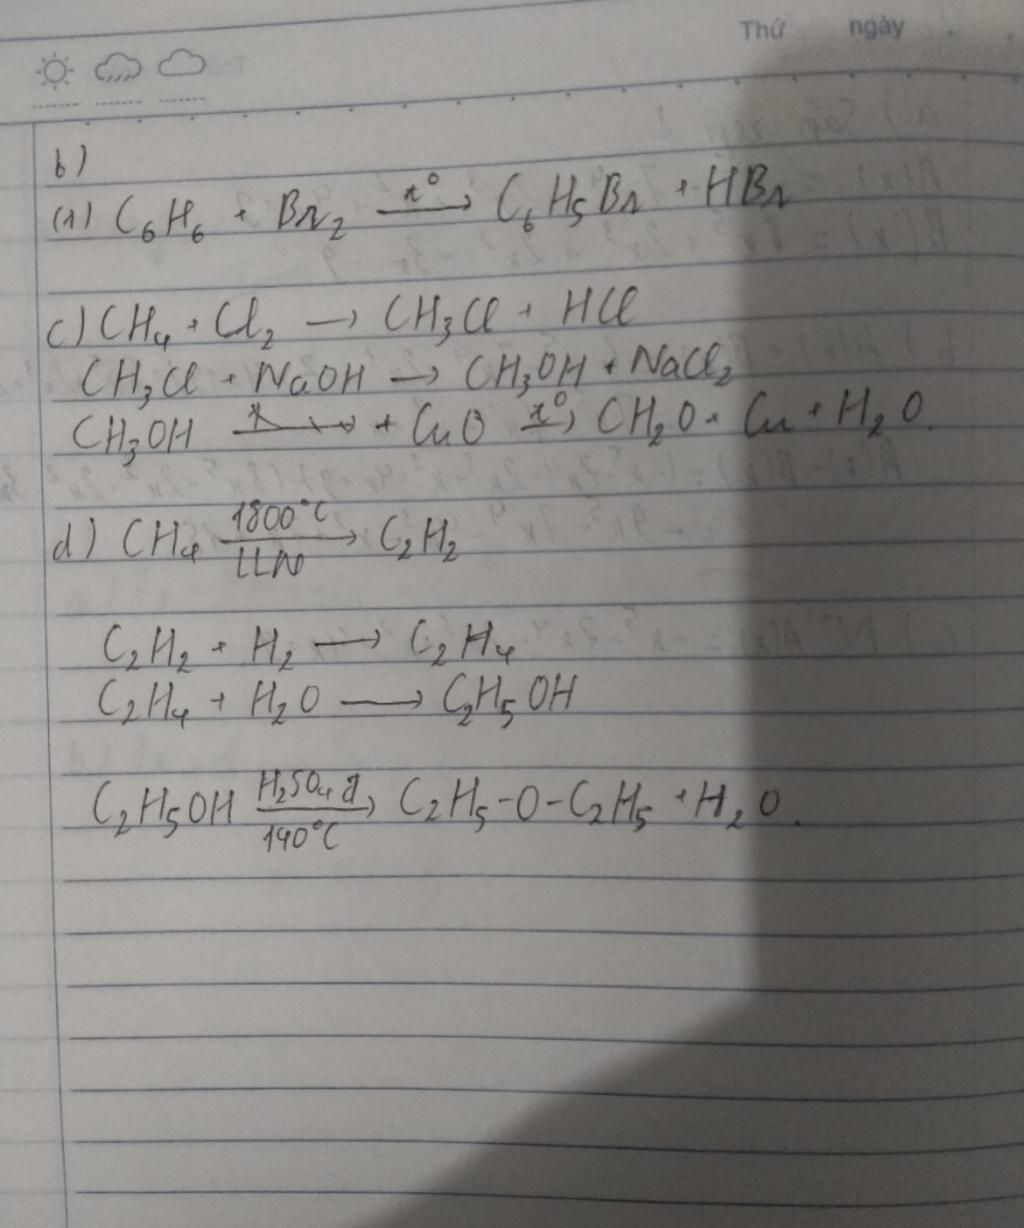 Thứ ngày
b)
(1) C₆H₆ + Br₂ →(t°) C₆H₅Br + HBr
c) CH₄ + Cl₂ → CH₃Cl + HCl
CH₃Cl + NaOH → CH₃OH + NaCl₂
CH₃OH + CuO →(t°) CH₂O + Cu + H₂O.
d) CH₄ →(1800°C, LLN) C₂H₂
C₂H₂ + H₂ → C₂H₄
C₂H₄ + H₂O → C₂H₅OH
C₂H₅OH →(H₂SO₄ đ, 140°C) C₂H₅-O-C₂H₅ + H₂O.